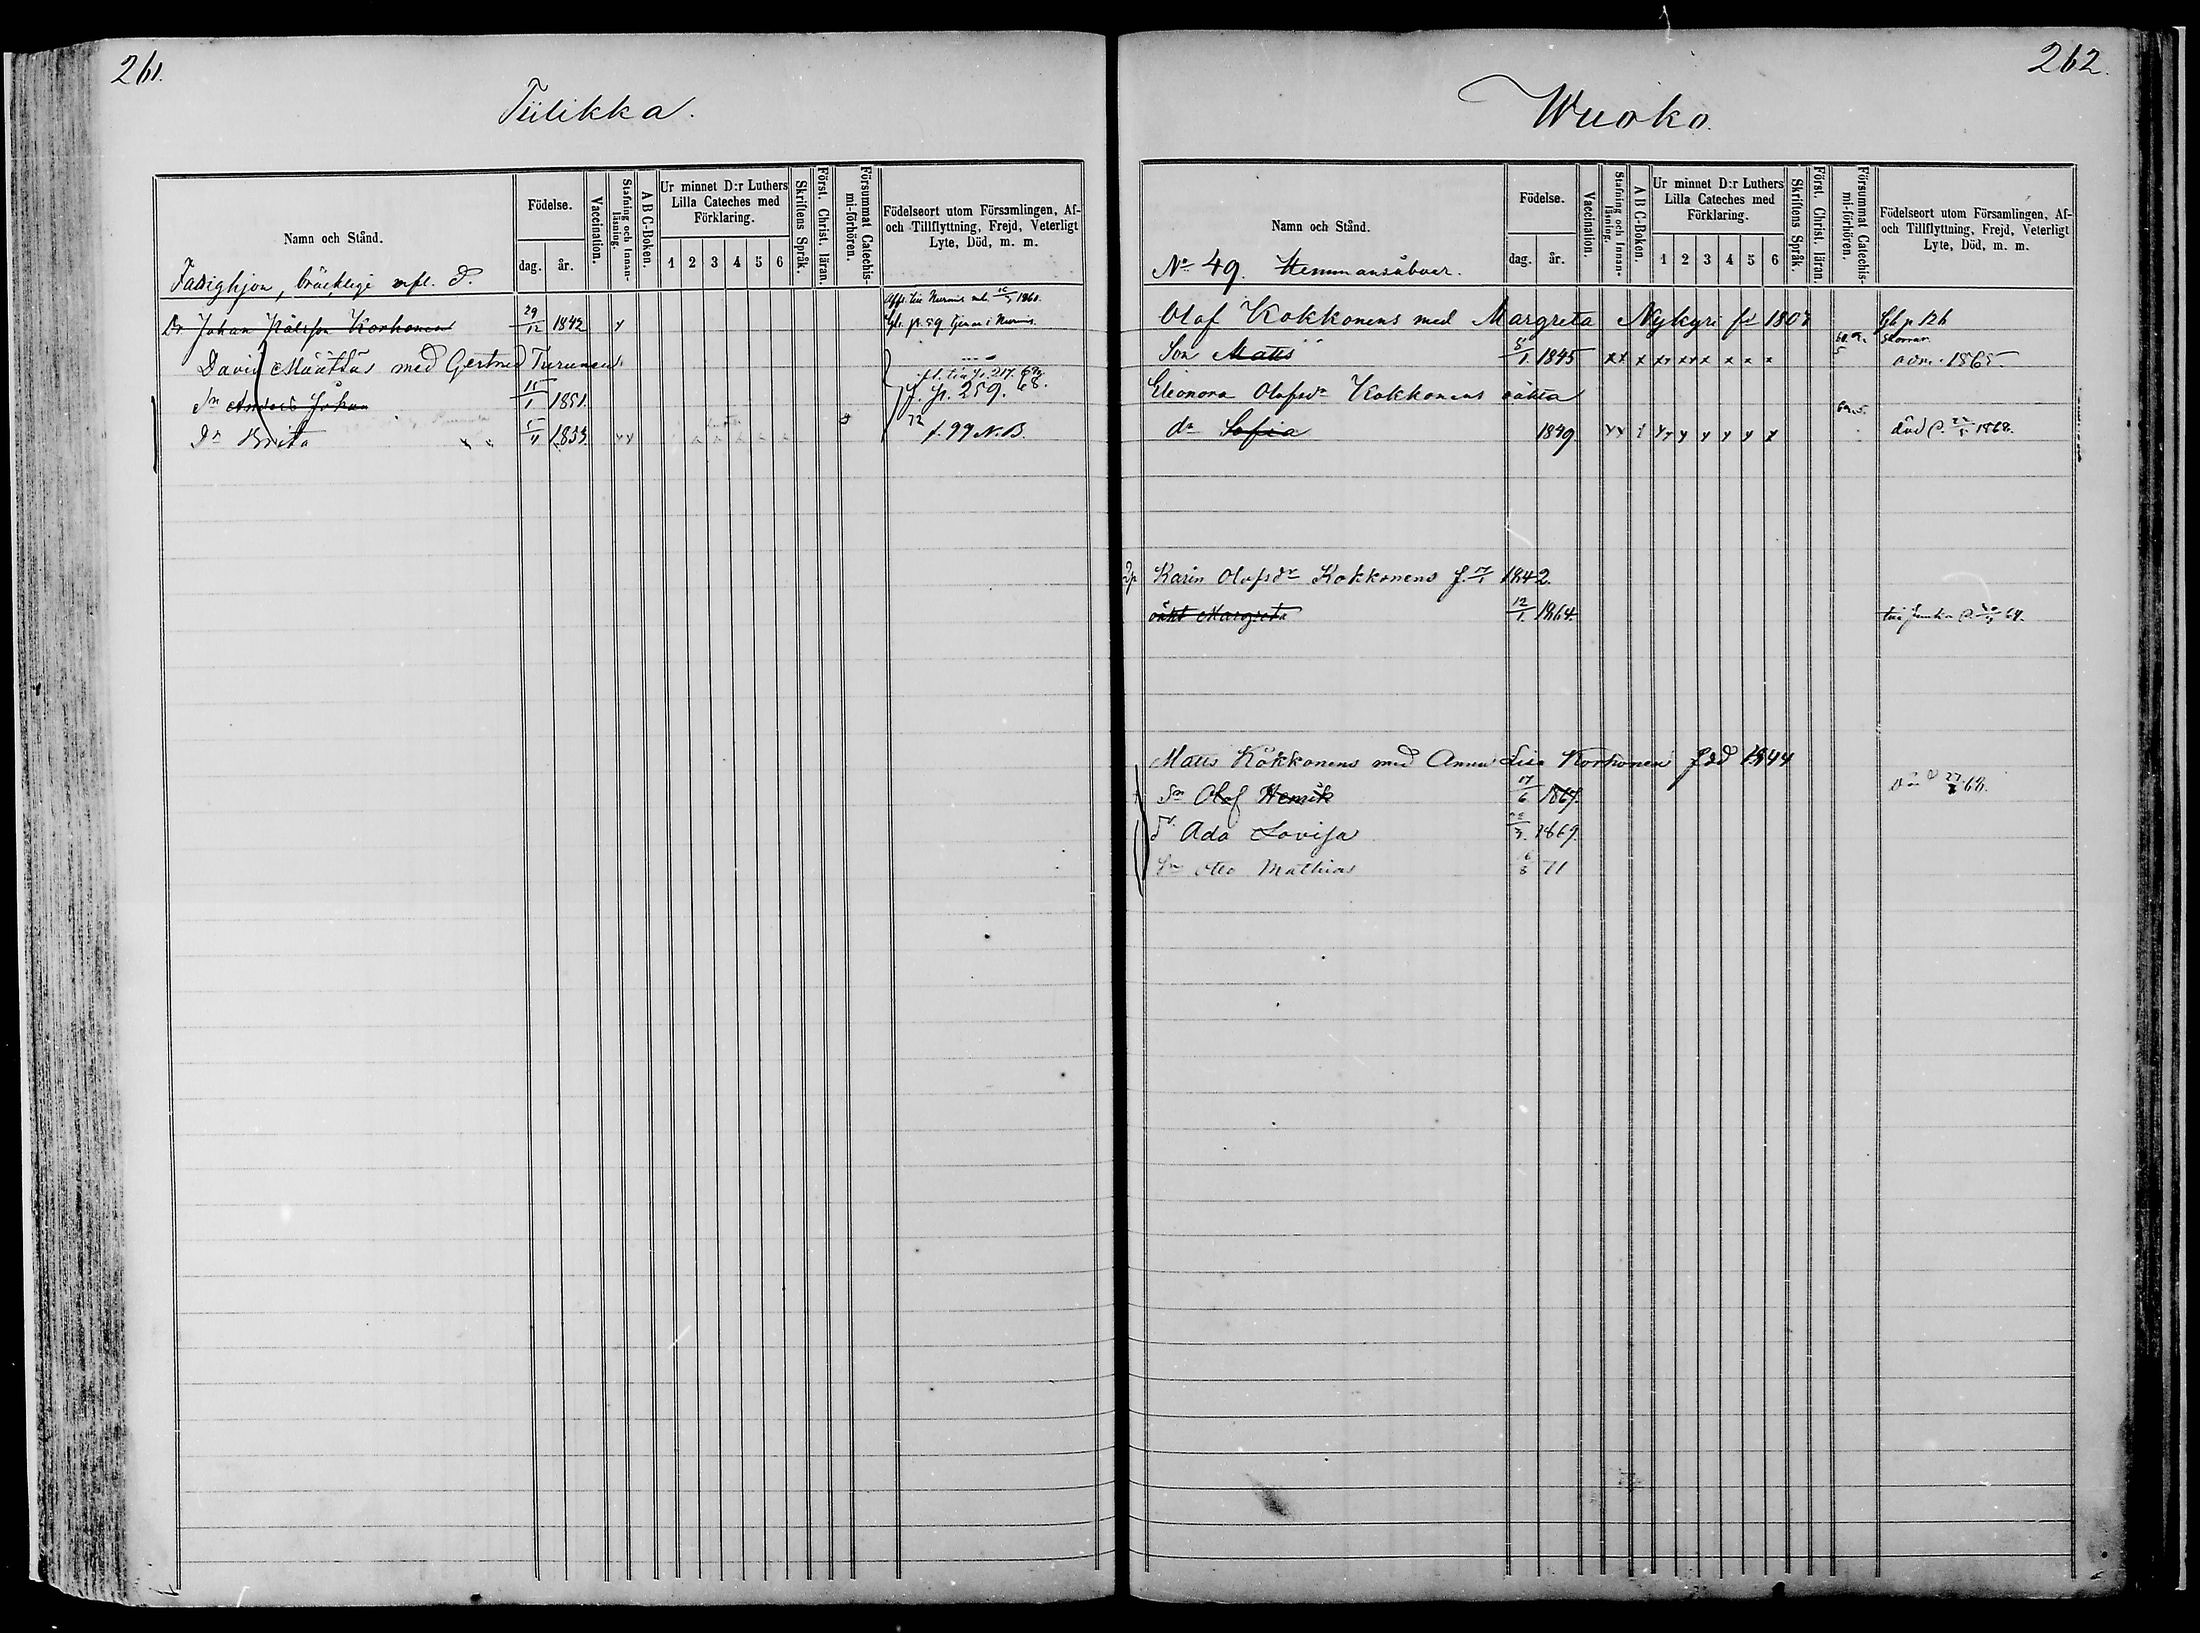 261.
Tiilikka.
Namn och Stånd.
Födelse.
dag.
år.
Vaccination.
Stafning och Innan-
läsning.
A B C-Boken.
Ur minnet D:r Luthers
Lilla Cateches med
Förklaring.
1 2 3 4 5 6
Skriftens Språk.
Först. Christ. läran.
Försummat Catechis-
mi-förhören.
Födelseort utom Församlingen, Af-
och Tillflyttning, Frejd, Veterligt
Lyte, Död, m. m.
Johan Korhonen 29/12 1842 y
David Määttäs med Gertrud Turunen
Sn Anders Johan 15/1 1851 p. 259. 68.
Dr Brita 72 p. 99 N.B.
262.
Wuoko.
Namn och Stånd.
No 49. Hemmansåboer.
Födelse.
dag.
år.
Vaccination.
Stafning och Innan-
läsning.
A B C-Boken.
Ur minnet D:r Luthers
Lilla Cateches med
Förklaring.
1 2 3 4 5 6
Skriftens Språk.
Först. Christ. läran.
Försummat Catechis-
mi-förhören.
Födelseort utom Församlingen, Af-
och Tillflyttning, Frejd, Veterligt
Lyte, Död, m. m.
Olof Kokkonens med Margreta Nykyri
Son Matts 5/1. 1845 xx x xx xx x x x x 1865
Eleonora Olofsdr Kokkonens oäkta
dr Sofia 1849 död 1868.
Karin Olofsdr Kokkonens f. 1842.
oäkt Margreta 12/1. 1864.
Matts Kokkonens med Anna Lisa Korhonen född 1844
Sn Olof Henrik 17/6 1867.
dr Ada Lovisa 1869.
Sn Otto Mathias 6/3 71